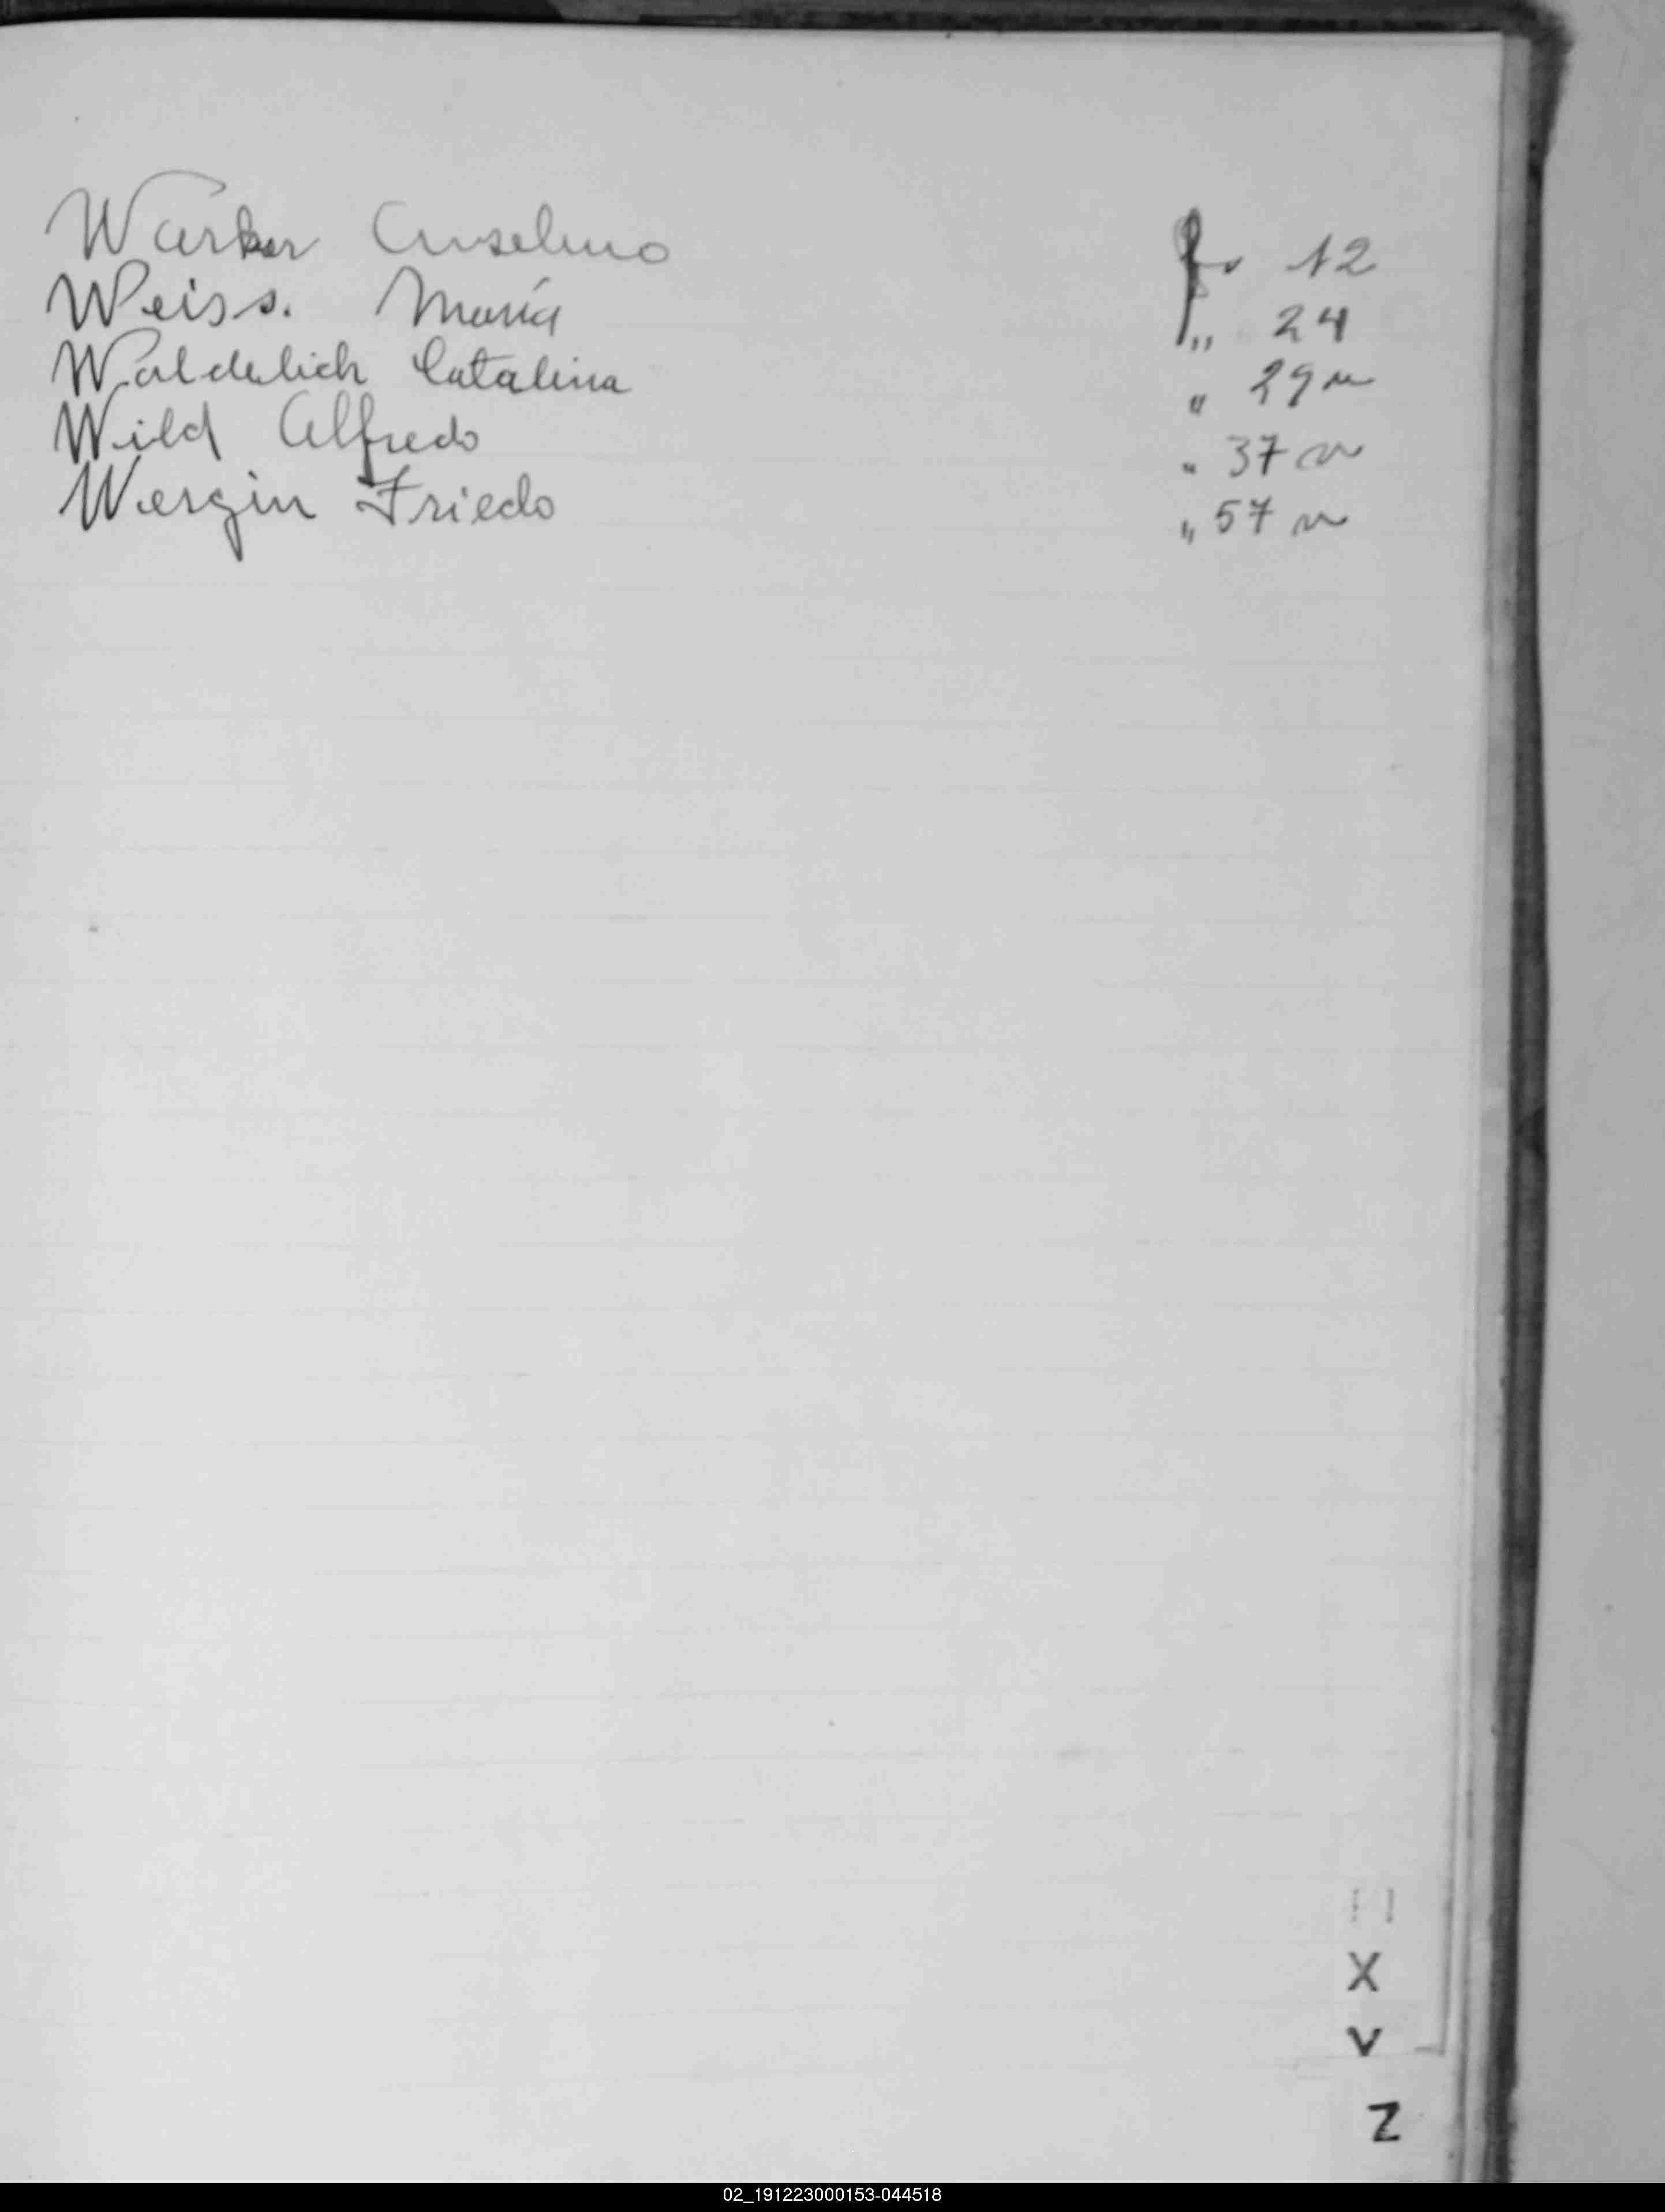 Warker Anselmo fv 12
Weiss. María ,, 24
Walderlich Catalina " 29 m
Wild Alfredo " 37 m
Wergin Friedo " 57 m
X
V
Z
02_191223000153-044518